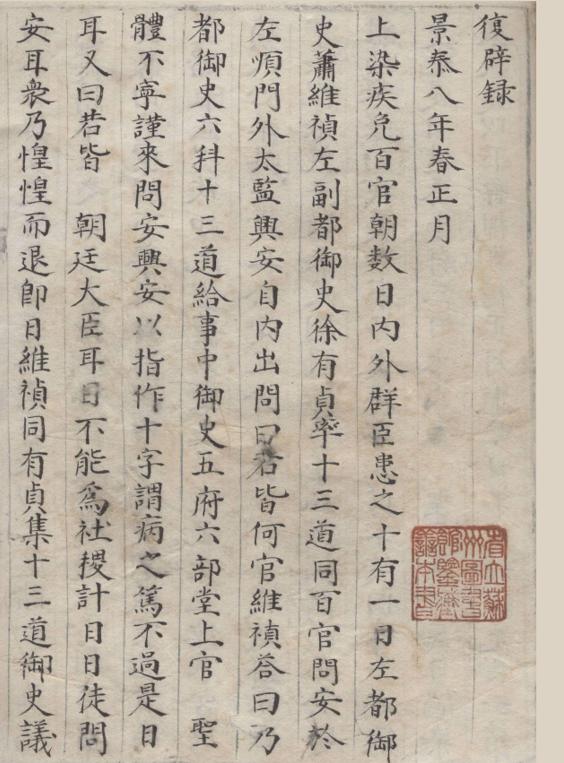 復辟録
景泰八年春正月
上染疾免百官朝数日内外群臣患之十有一日左都御
史蕭維禎左副都御史徐有貞率十三道同百官問安於
左順門外太監興安自内出問曰若皆何官維禎荅曰乃
都御史六科十三道給事中御史五府六部堂上官　聖
體不寧謹來問安興安以指作十字謂病之篤不過是日
耳又曰若皆　朝廷大臣耳目不能為社稷計日日徒問
安耳衆乃惶惶而退即日維禎同有貞集十三道御史議
省立蘇
州圖書
館鑒藏
善本書